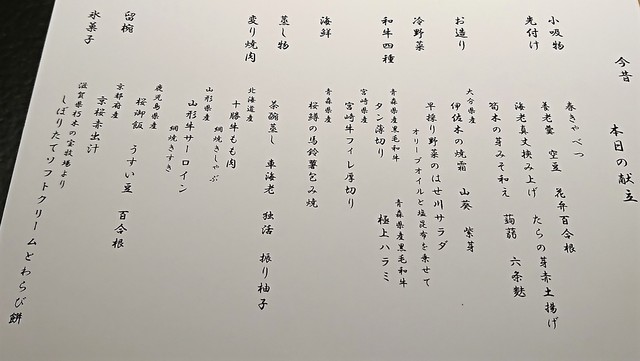 今昔
本日の献立
小吸物
春きゃべつ
先付け
養老羹 空豆 花弁百合根
海老真丈挟み上げ たらの芽赤土揚げ
筍木の芽みそ和え 蒟蒻 六条麩
お造り
大分県産
伊佐木の焼霜 山葵 紫芽
冷野菜
早採り野菜のはせ川サラダ
オリーブオイルと塩昆布を乗せて
和牛四種
青森県産黒毛和牛
タン薄切り
青森県産黒毛和牛
極上ハラミ
宮崎県産
宮崎牛フィレ厚切り
海鮮
青森県産
桜鱒の馬鈴薯包み焼
蒸し物
茶碗蒸し 車海老 独活 振り柚子
変り焼肉
北海道産
十勝牛もも肉
網焼きしゃぶ
山形県産
山形牛サーロイン
網焼きすき
留椀
鹿児島県産
桜御飯 うすい豆 百合根
京都府産
京桜赤出汁
氷菓子
滋賀県朽木の宝牧場より
しぼりたてソフトクリームとわらび餅